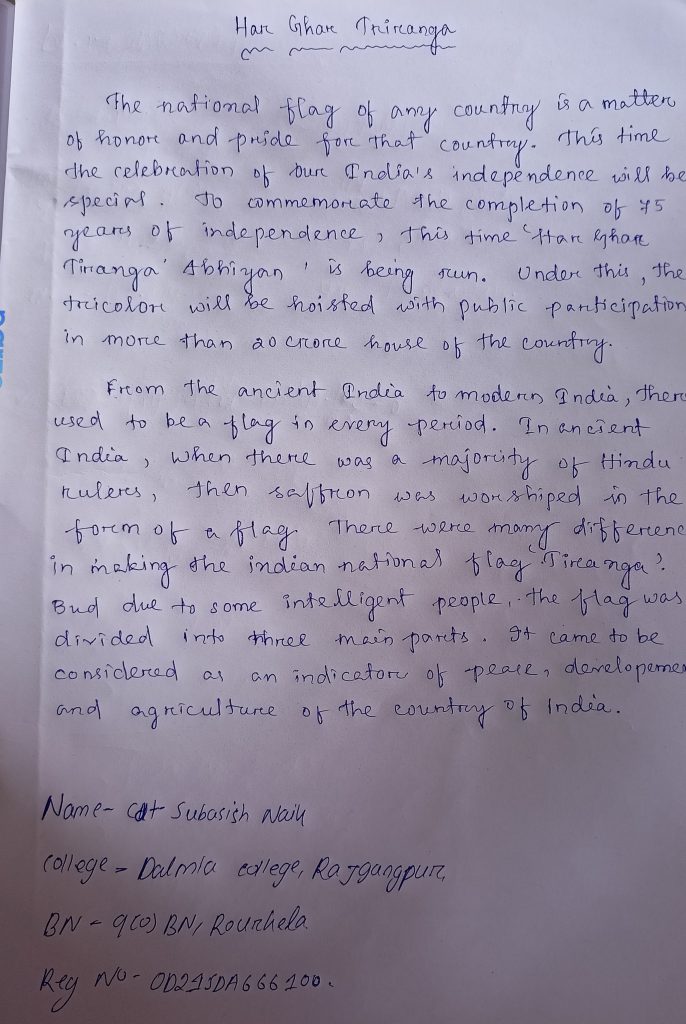 Har Ghar Triranga
The national flag of any country is a matter
of honor and pride for that country. This time
the celebration of our India's independence will be
special. To commemorate the completion of 75
years of independence, this time 'Har Ghar
Tiranga' Abhiyan' is being run. Under this, the
tricolor will be hoisted with public participation
in more than 20 crore house of the country.
From the ancient India to modern India, there
used to be a flag in every period. In ancient
India, when there was a majority of Hindu
rulers, then saffron was worshiped in the
form of a flag. There were many differenc
in making the indian national flag 'Tiranga'.
Bud due to some intelligent people, the flag was
divided into three main parts. It came to be
considered as an indicator of peace, developemen
and agriculture of the country of India.
Name- cdt Subasish Naik
College - Dalmia college, Rajgangpur,
BN - 9(O) BN, Rourkela
Reg No- OD21SDA666100.